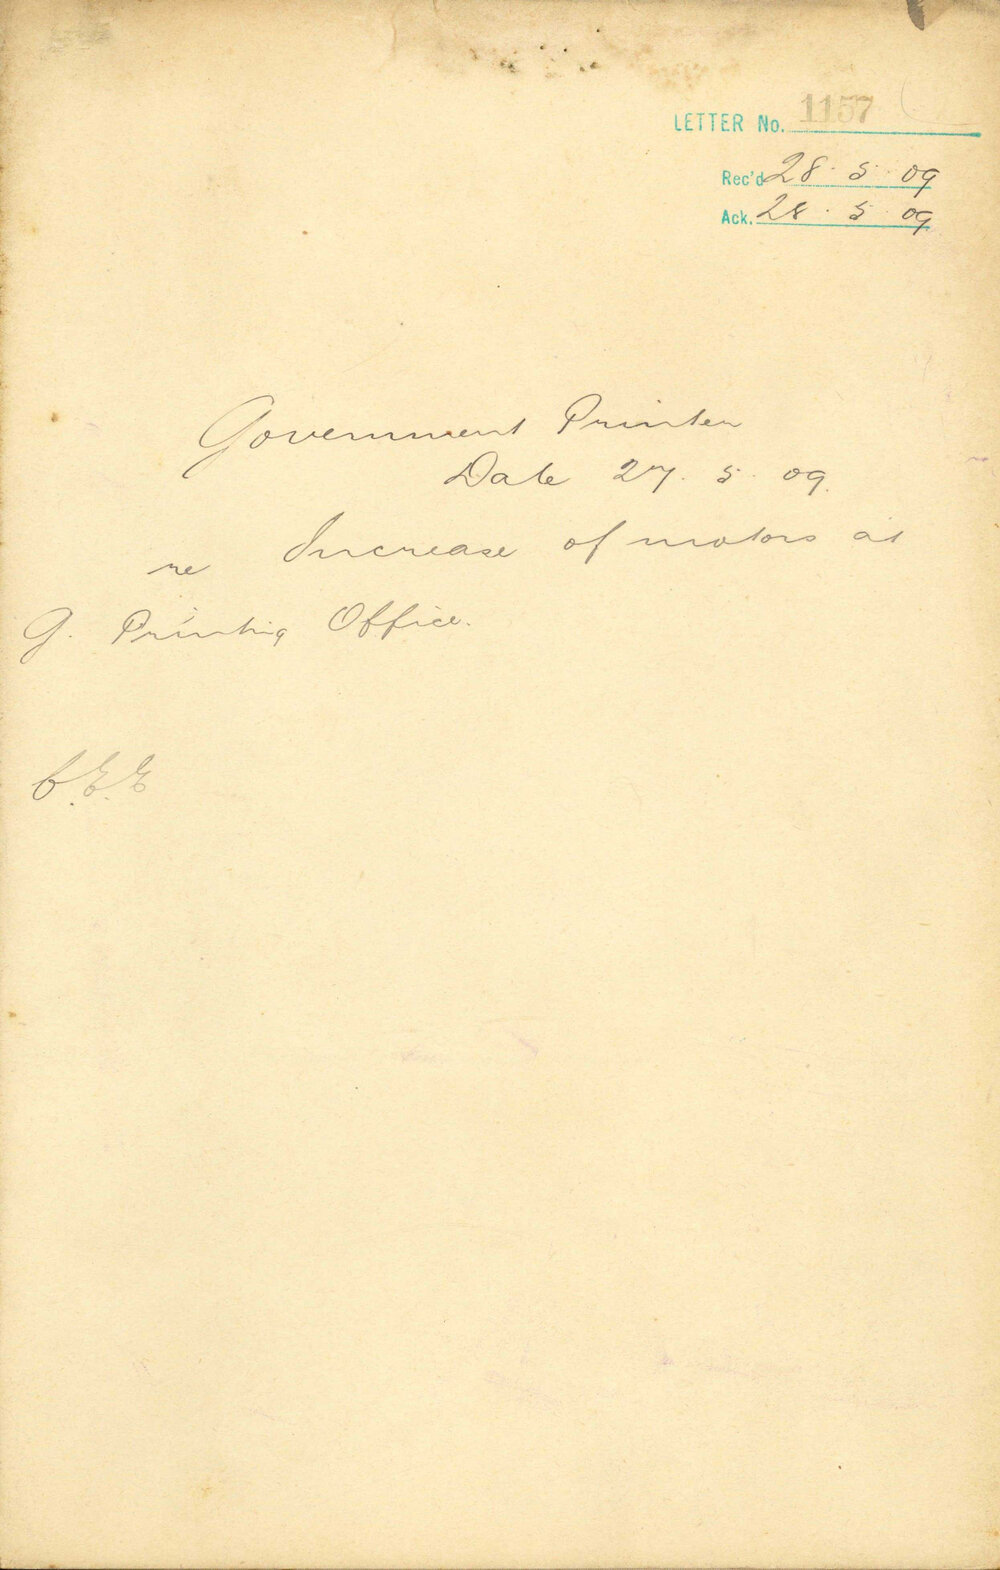 LETTER No. 1157
Rec'd 28. 5. 09
Ack. 28. 5. 09
Government Printer
Date 27. 5. 09.
re Increase of motors at
G. Printing Office.
C.E.E